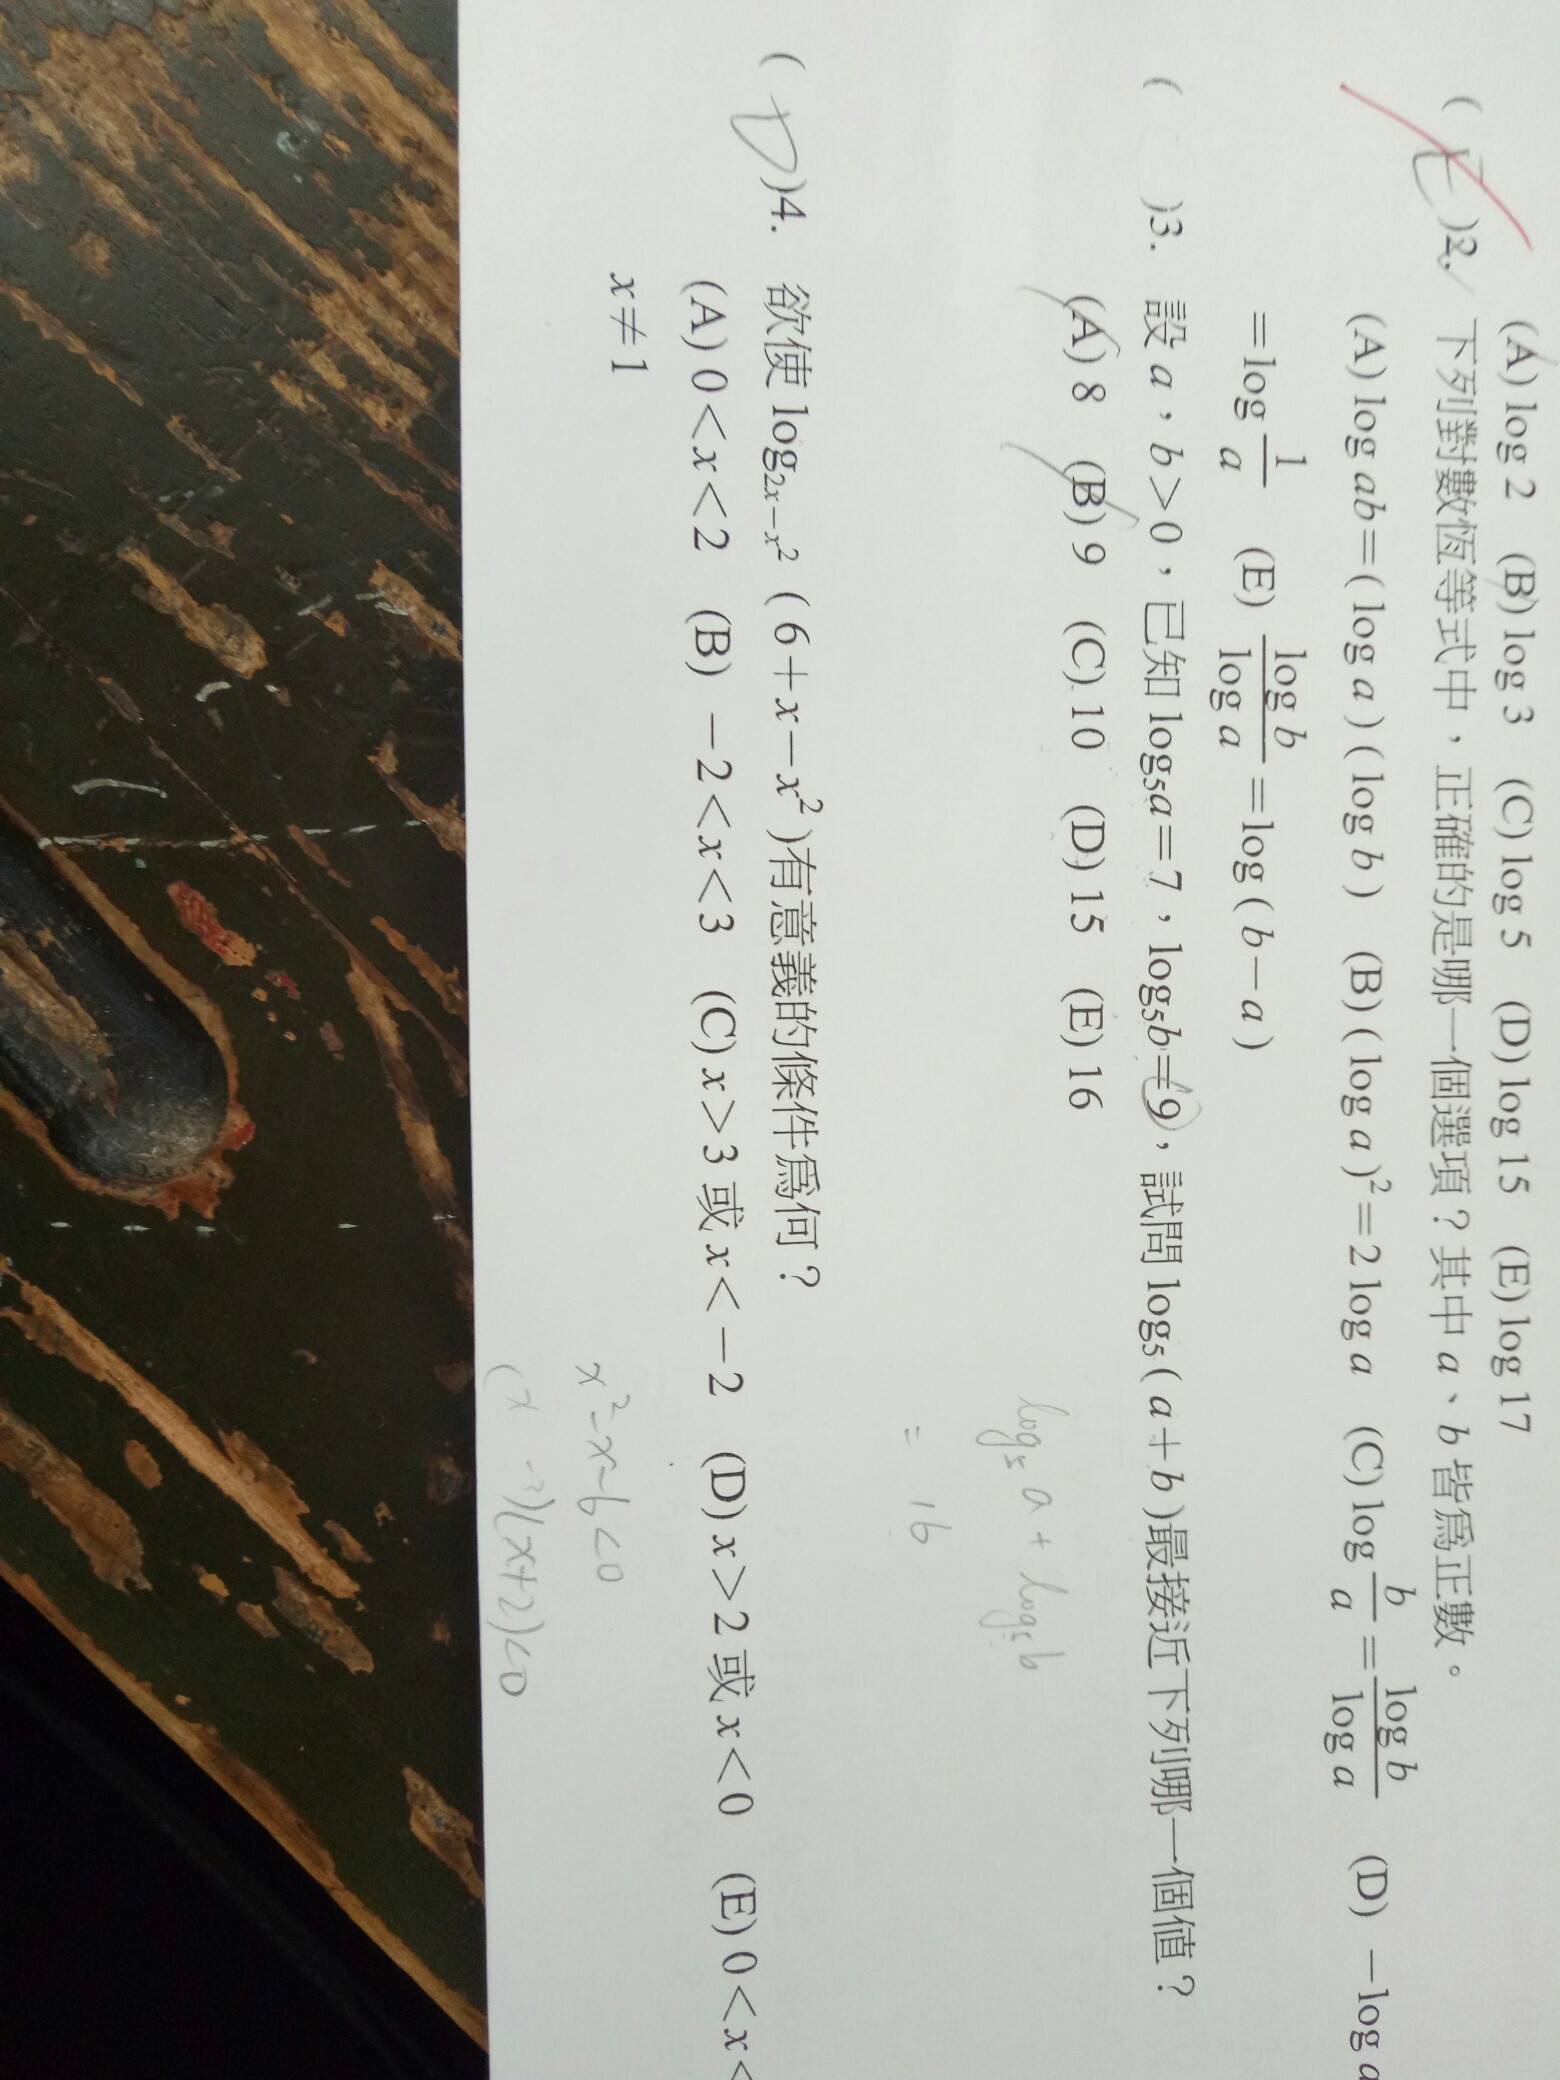 (A) log 2 (B) log 3 (C) log 5 (D) log 15 (E) log 17
( E )2. 下列對數恆等式中，正確的是哪一個選項？其中 a、b 皆為正數。
(A) log ab=(log a)(log b) (B) (log a)²=2 log a (C) log b/a = log b/log a (D) －log a
=log 1/a (E) log b/log a =log (b－a)
( )3. 設 a，b>0，已知 log₅a=7，log₅b=9，試問 log₅(a+b)最接近下列哪一個值？
(A) 8 (B) 9 (C) 10 (D) 15 (E) 16
log₅ a + log₅ b
= 16
( D )4. 欲使 log₂ₓ₋ₓ² (6+x－x²)有意義的條件為何？
(A) 0<x<2 (B) －2<x<3 (C) x>3 或 x<－2 (D) x>2 或 x<0 (E) 0<x<
x≠1
x²-x-6<0
(x -3)(x+2)<0